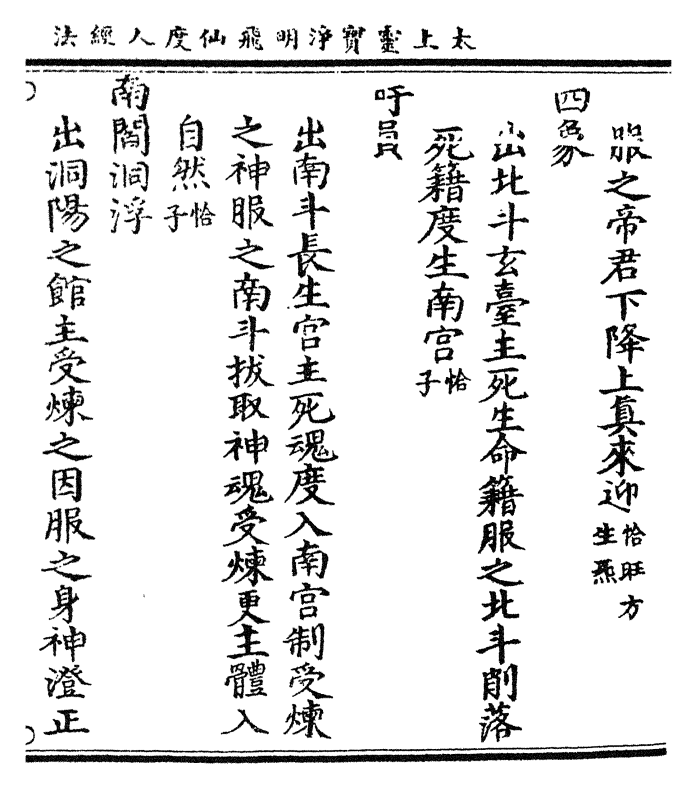 太上靈寶淨明飛仙度人經法
服之帝君下降上真來迎恰旺方生炁
四象
出北斗玄臺主死生命籍服之北斗削落
死籍度生南宮恰子
吁員
出南斗長生宮主死魂度入南宮制受煉
之神服之南斗拔取神魂受煉更主體入
自然恰子
南閻洞浮
出洞陽之館主受煉之因服之身神澄正